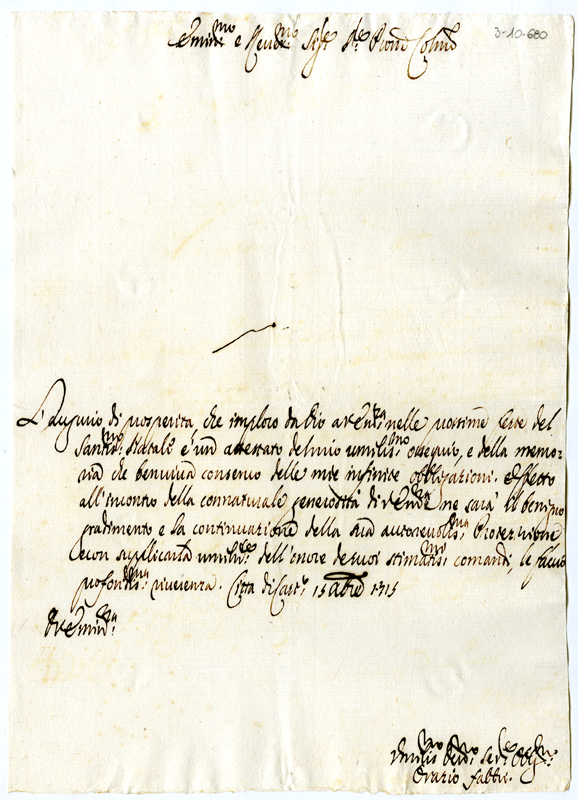 3-10-680
Emin.mo e Reu.mo Sig.re Sig.re Pron Colmo
L'augurio di prosperità, che imploro da Dio a V. Em.za nelle prossime feste del
Santis.mo Natale è un attestato del mio umilis.mo ossequio, e della memo-
ria che ben viva conservo delle mie infinite obbligazioni. Effetto
all'incontro della connaturale generosità di V. Em.za ne sarà il benigno
gradimento e la continuazione della sua autorevolis.ma Protezzione
e con supplicarla umilm.te dell'onore de suoi stimatis.mi comandi, le faccio
profondis.ma riverenza. Città di Cast.o 15 1715
Di V. Emin.za
Umilis.mo Seru.re
Orazio Fabbri.